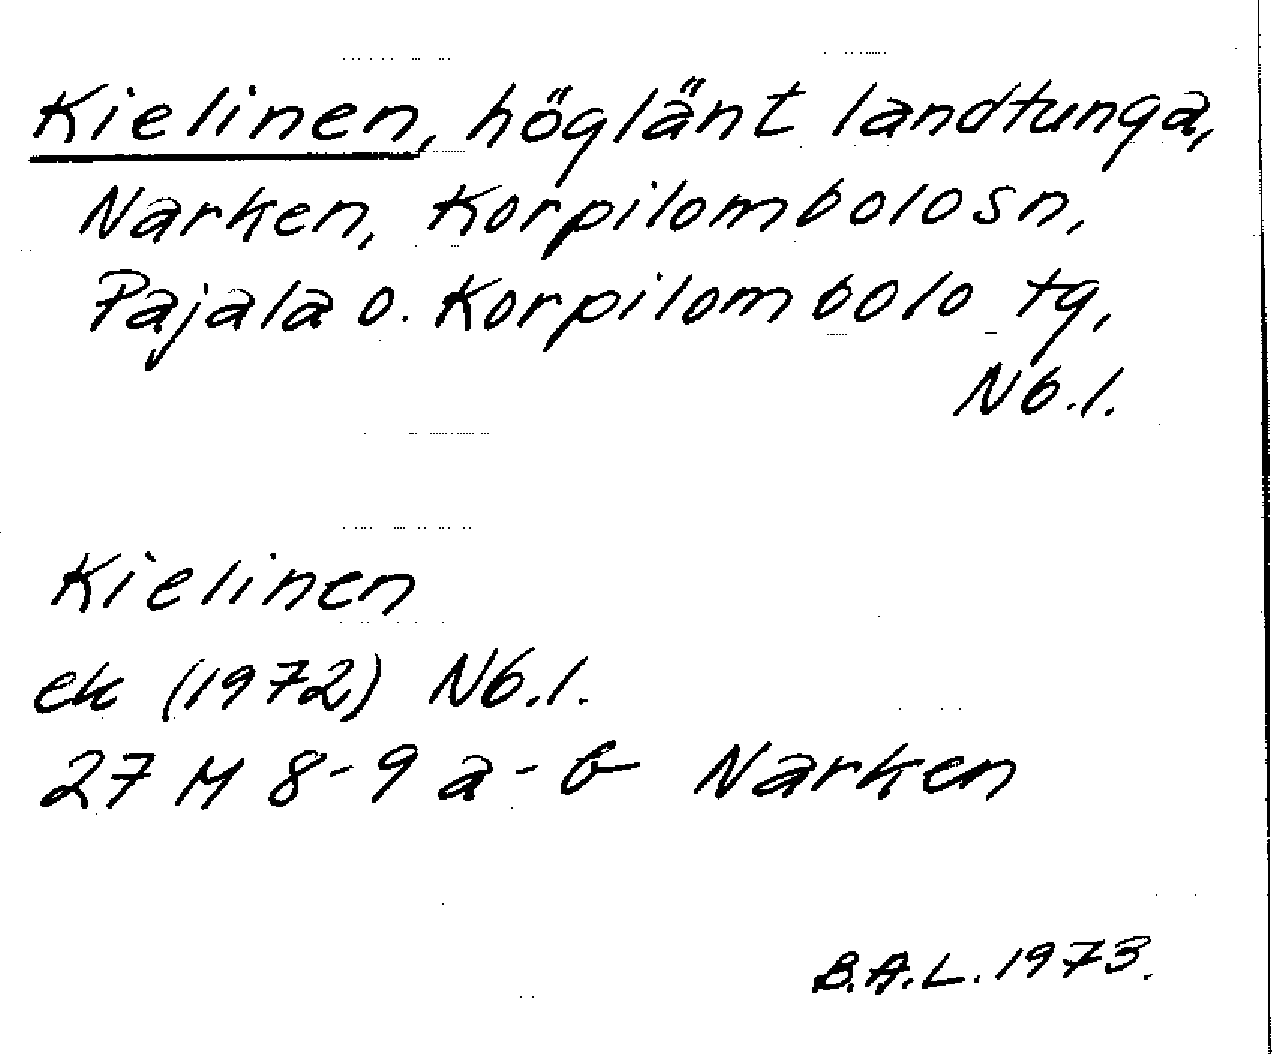 Kielinen, höglänt landtunga,
Narken, Korpilombolo sn,
Pajala o. Korpilombolo tg,
Nb.l.
Kielinen
ek (1972) Nb.l.
27 M 8-9 a-b Narken
B.A.L. 1973.